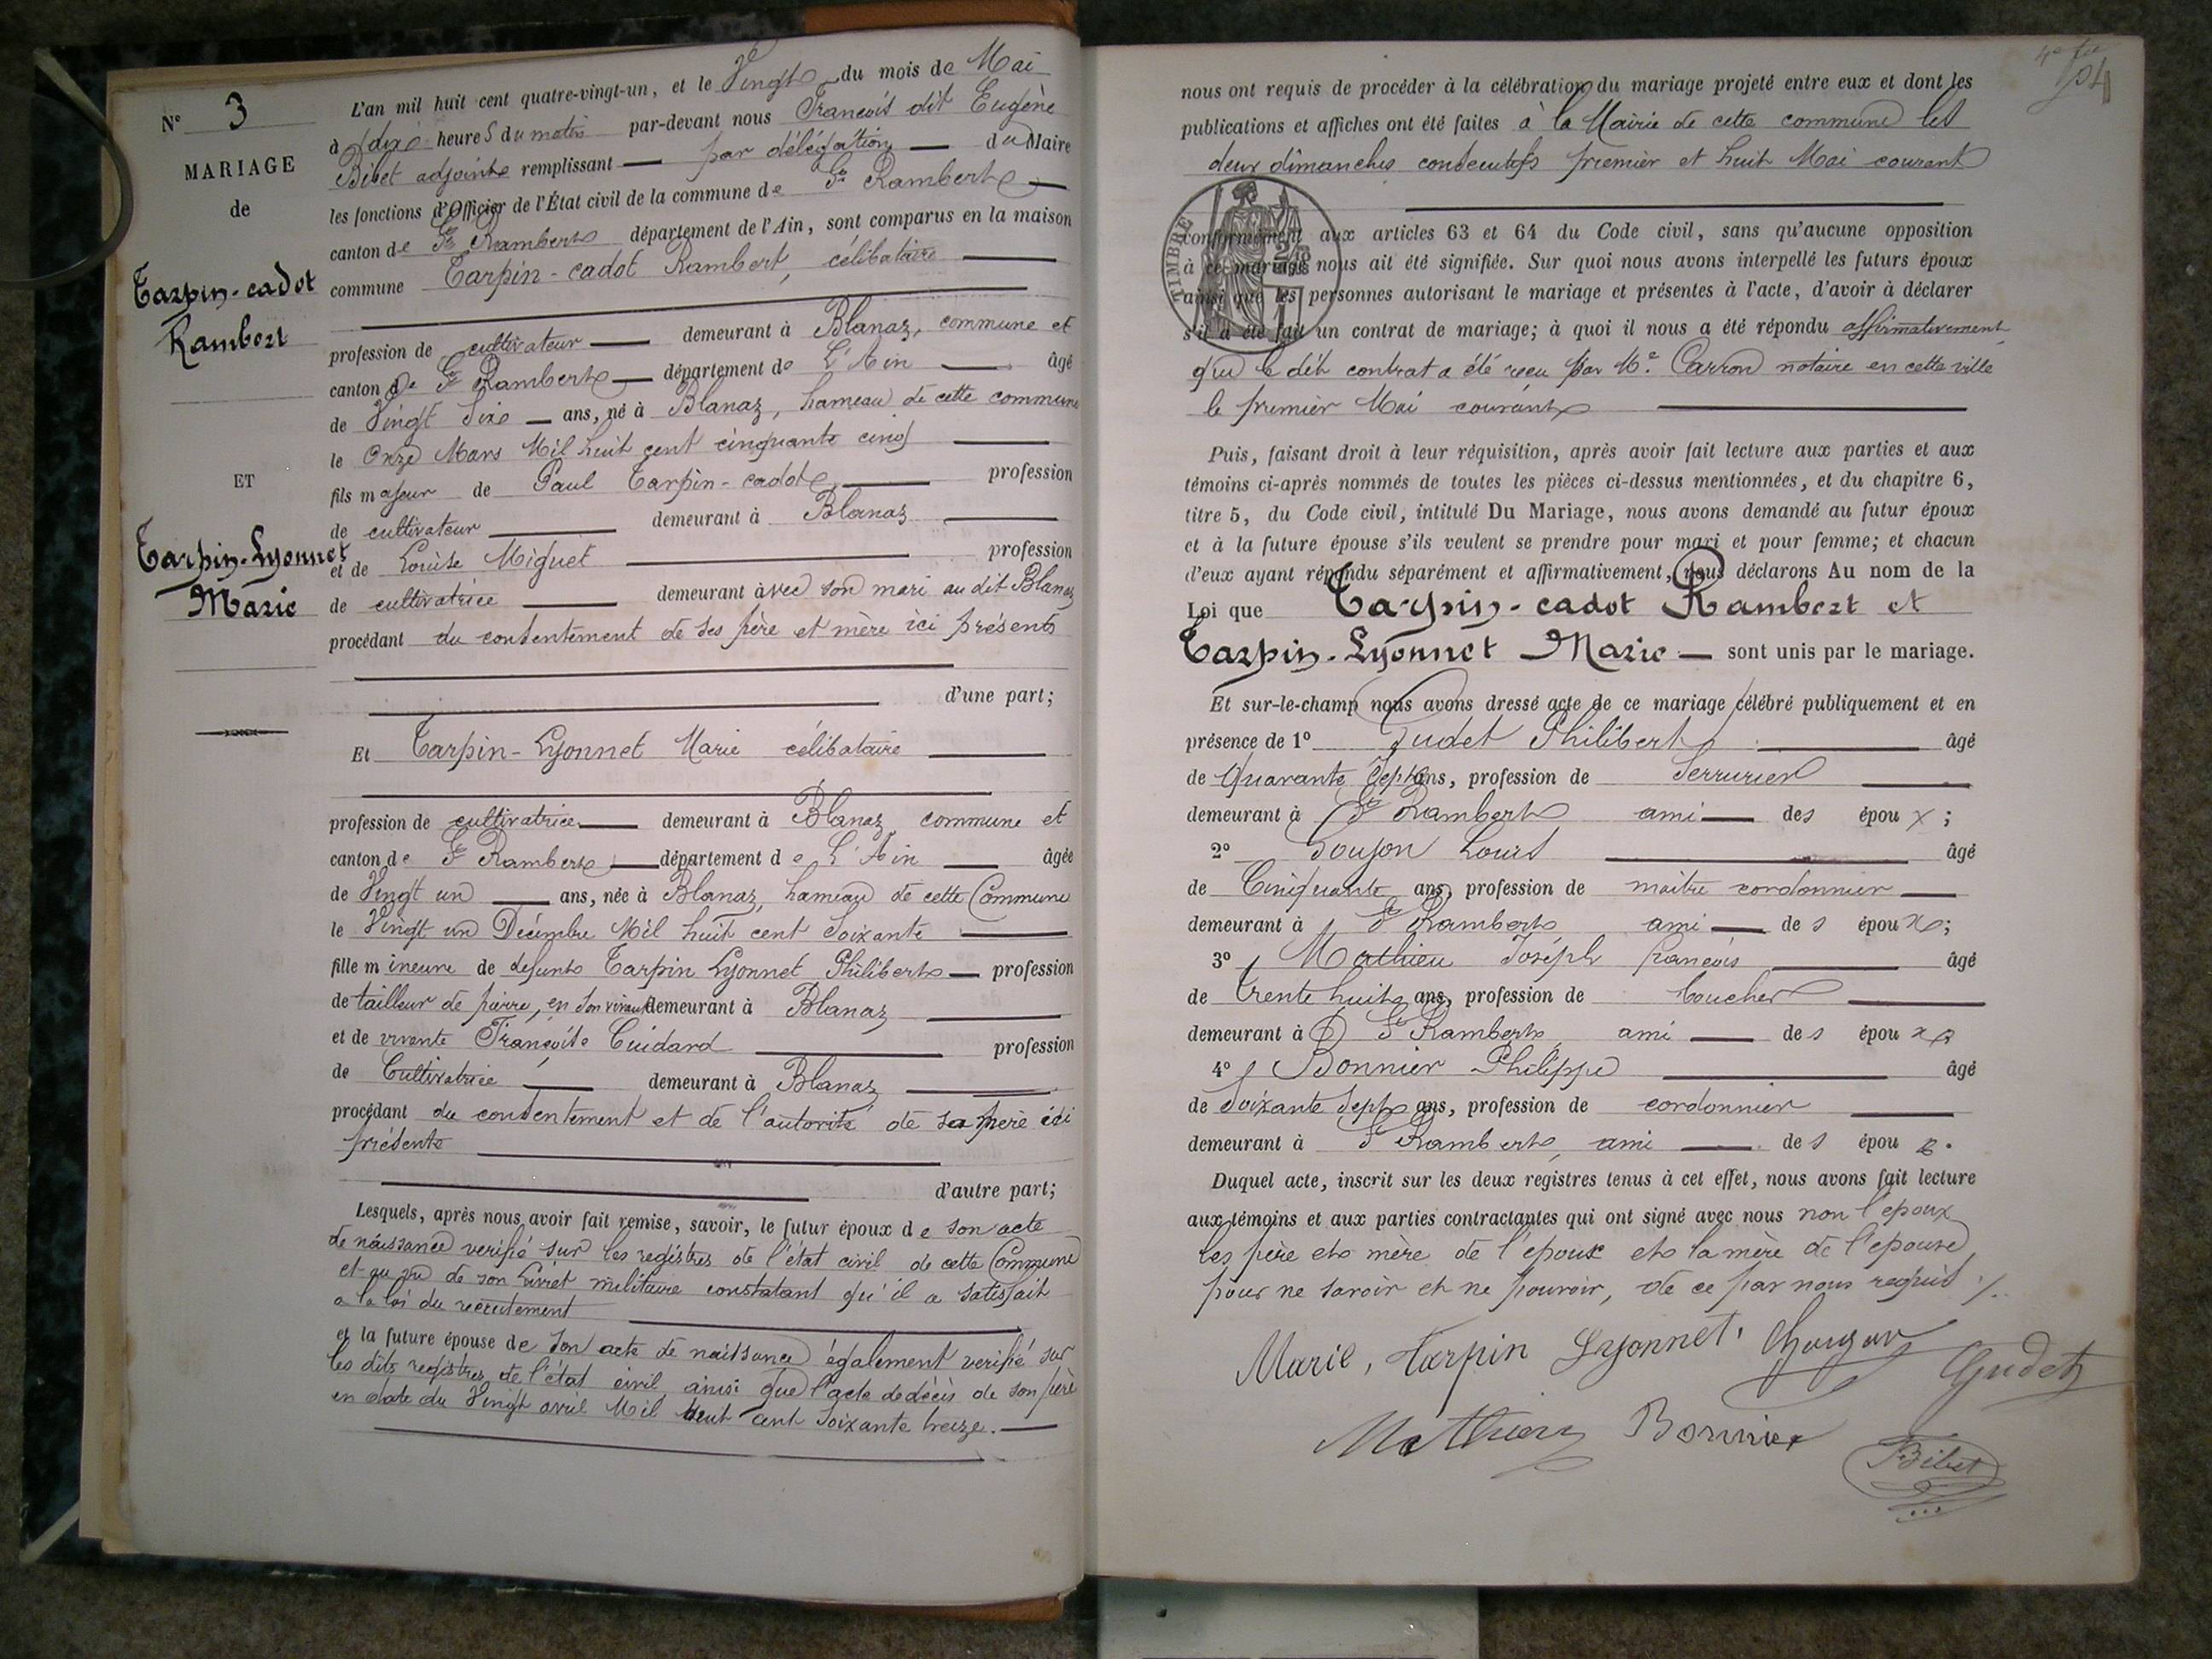 N° 3
MARIAGE
de
Tarpin-cadot
Rambert
ET
Tarpin-Lyonnet
Marie
L'an mil huit cent quatre-vingt-un, et le Vingt du mois de Mai
à dix heures du matin par-devant nous Francois dit Eugène
Bibet adjoint remplissant par délégation du Maire
les fonctions d'Officier de l'État civil de la commune de St Rambert
canton de St Rambert département de l'Ain, sont comparus en la maison
commune Tarpin-cadot Rambert, célibataire
profession de cultivateur demeurant à Blanaz, commune et
canton de St Rambert département de L'Ain âgé
de Vingt Six ans, né à Blanaz, hameau de cette commune
le Onze Mars Mil huit cent cinquante cinq
fils majeur de Paul Tarpin-cadot profession
de cultivateur demeurant à Blanaz
et de Louise Miguet profession
de cultivatrice demeurant avec son mari au dit Blanaz
procédant du consentement de ses père et mère ici présents
d'une part;
Et Tarpin-Lyonnet Marie célibataire
profession de cultivatrice demeurant à Blanaz commune et
canton de St Rambert département de L'Ain âgée
de Vingt un ans, née à Blanaz, hameau de cette Commune
le Vingt un Décembre Mil huit cent Soixante
fille mineure de defunt Tarpin Lyonnet Philibert profession
de tailleur de pierre, en son vivant demeurant à Blanaz
et de vivante Françoise Guidard profession
de Cultivatrice demeurant à Blanaz
procédant du consentement et de l'autorité de sa mère ici
présente
d'autre part;
Lesquels, après nous avoir fait remise, savoir, le futur époux de son acte
de naissance verifié sur les registres de l'état civil de cette Commune
et au vu de son Livret militaire constatant qu'il a satisfait
a la loi du recrutement
et la future épouse de son acte de naissance également verifié sur
les dits registres de l'état civil, ainsi que l'acte de décès de son père
en date du Vingt avril Mil huit cent soixante treize.
nous ont requis de procéder à la célébration du mariage projeté entre eux et dont les
publications et affiches ont été faites à la Mairie de cette commune les
deux dimanches consecutifs premier et huit Mai courant
TIMBRE
conformément aux articles 63 et 64 du Code civil, sans qu'aucune opposition
à ce mariage nous ait été signifiée. Sur quoi nous avons interpellé les futurs époux
ainsi que les personnes autorisant le mariage et présentes à l'acte, d'avoir à déclarer
s'il a été fait un contrat de mariage; à quoi il nous a été répondu affirmativement,
que le dit contrat a été reçu par Me. Carron notaire en cette ville
le premier Mai courant
Puis, faisant droit à leur réquisition, après avoir fait lecture aux parties et aux
témoins ci-après nommés de toutes les pièces ci-dessus mentionnées, et du chapitre 6,
titre 5, du Code civil, intitulé Du Mariage, nous avons demandé au futur époux
et à la future épouse s'ils veulent se prendre pour mari et pour femme; et chacun
d'eux ayant répondu séparément et affirmativement, nous déclarons Au nom de la
Loi que Tarpin-cadot Rambert et
Tarpin-Lyonnet Marie sont unis par le mariage.
Et sur-le-champ nous avons dressé acte de ce mariage célébré publiquement et en
présence de 1° Gudet Philibert âgé
de Quarante Sept ans, profession de Serrurier
demeurant à St Rambert ami des époux;
2° Goujon Louis âgé
de Cinquante ans, profession de maitre cordonnier
demeurant à St Rambert ami des époux;
3° Mathieu Joséph francois âgé
de trente huit ans, profession de boucher
demeurant à St Rambert, ami des époux
4° Bonnier Philippe âgé
de Soixante Sept ans, profession de cordonnier
demeurant à St Rambert, ami des époux.
Duquel acte, inscrit sur les deux registres tenus à cet effet, nous avons fait lecture
aux témoins et aux parties contractantes qui ont signé avec nous non l'epoux
les père et mère de l'epoux et la mère de l'epouse,
pour ne savoir et ne pouvoir, de ce par nous requis ./.
Marie, tarpin Lyonnet. Goujon Gudet
Mathieu Bonnier
Bibet